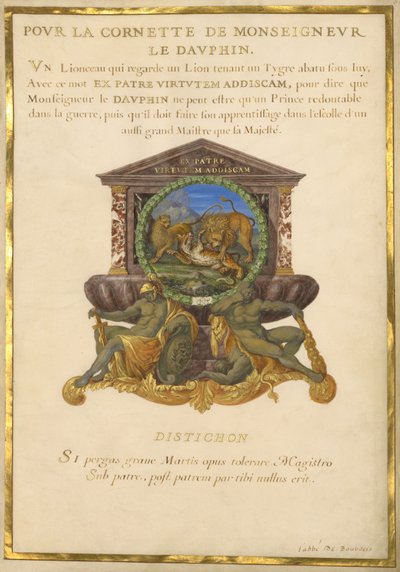 POVR LA CORNETTE DE MONSEIGNEVR
LE DAVPHIN.
VN Lionceau qui regarde un Lion tenant un Tygre abatu sous luy,
Avec ce mot EX PATRE VIRTVTEM ADDISCAM, pour dire que
Monseigneur le DAVPHIN ne peut estre qu'un Prince redoutable
dans la guerre, puis qu'il doit faire son apprentissage dans l'escolle d'un
aussi grand Maistre que sa Majesté.
EX PATRE
VIRTVTEM ADDISCAM
DISTICHON
SI pergas grave Martis opus tolerare Magistro
Sub patre, post patrem par tibi nullus erit.
l'abbé De